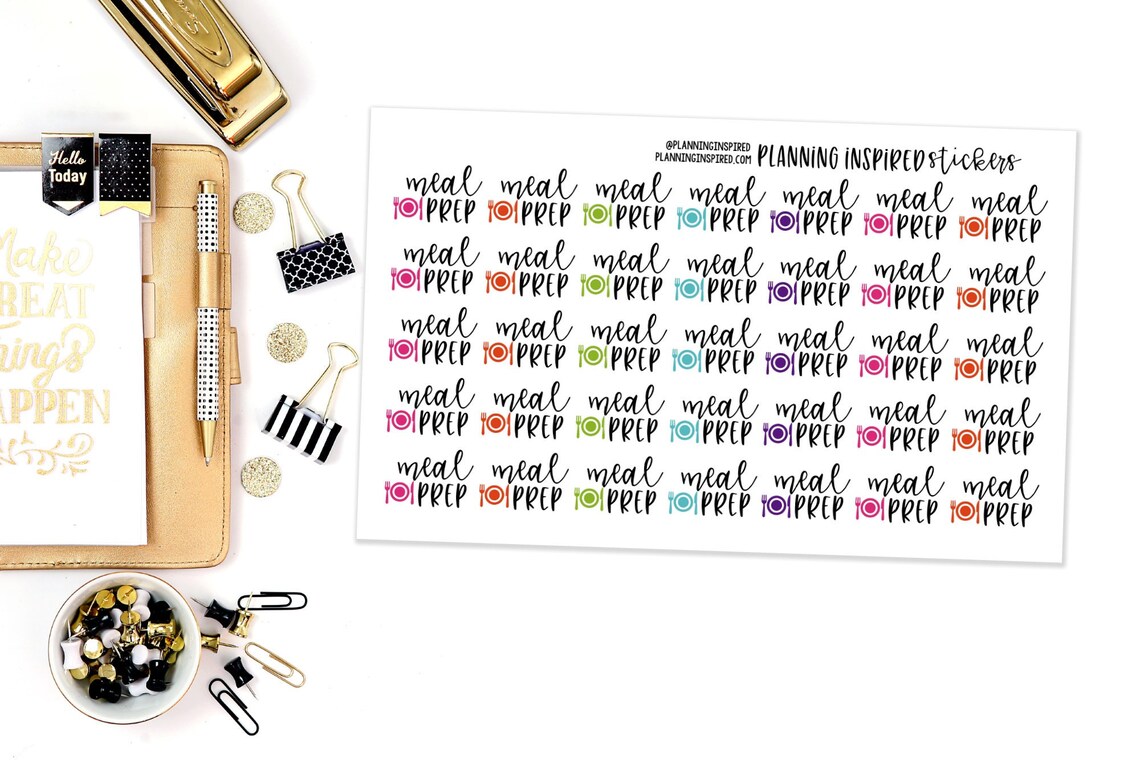 Hello
Today
Make
GREAT
Things
HAPPEN
@PLANNINGINSPIRED
PLANNINGINSPIRED.COM PLANNING INSPIRED stickers
meal meal meal meal meal meal meal
PREP PREP PREP PREP PREP PREP PREP
meal meal meal meal meal meal meal
PREP PREP PREP PREP PREP PREP PREP
meal meal meal meal meal meal meal
PREP PREP PREP PREP PREP PREP PREP
meal meal meal meal meal meal meal
PREP PREP PREP PREP PREP PREP PREP
meal meal meal meal meal meal meal
PREP PREP PREP PREP PREP PREP PREP